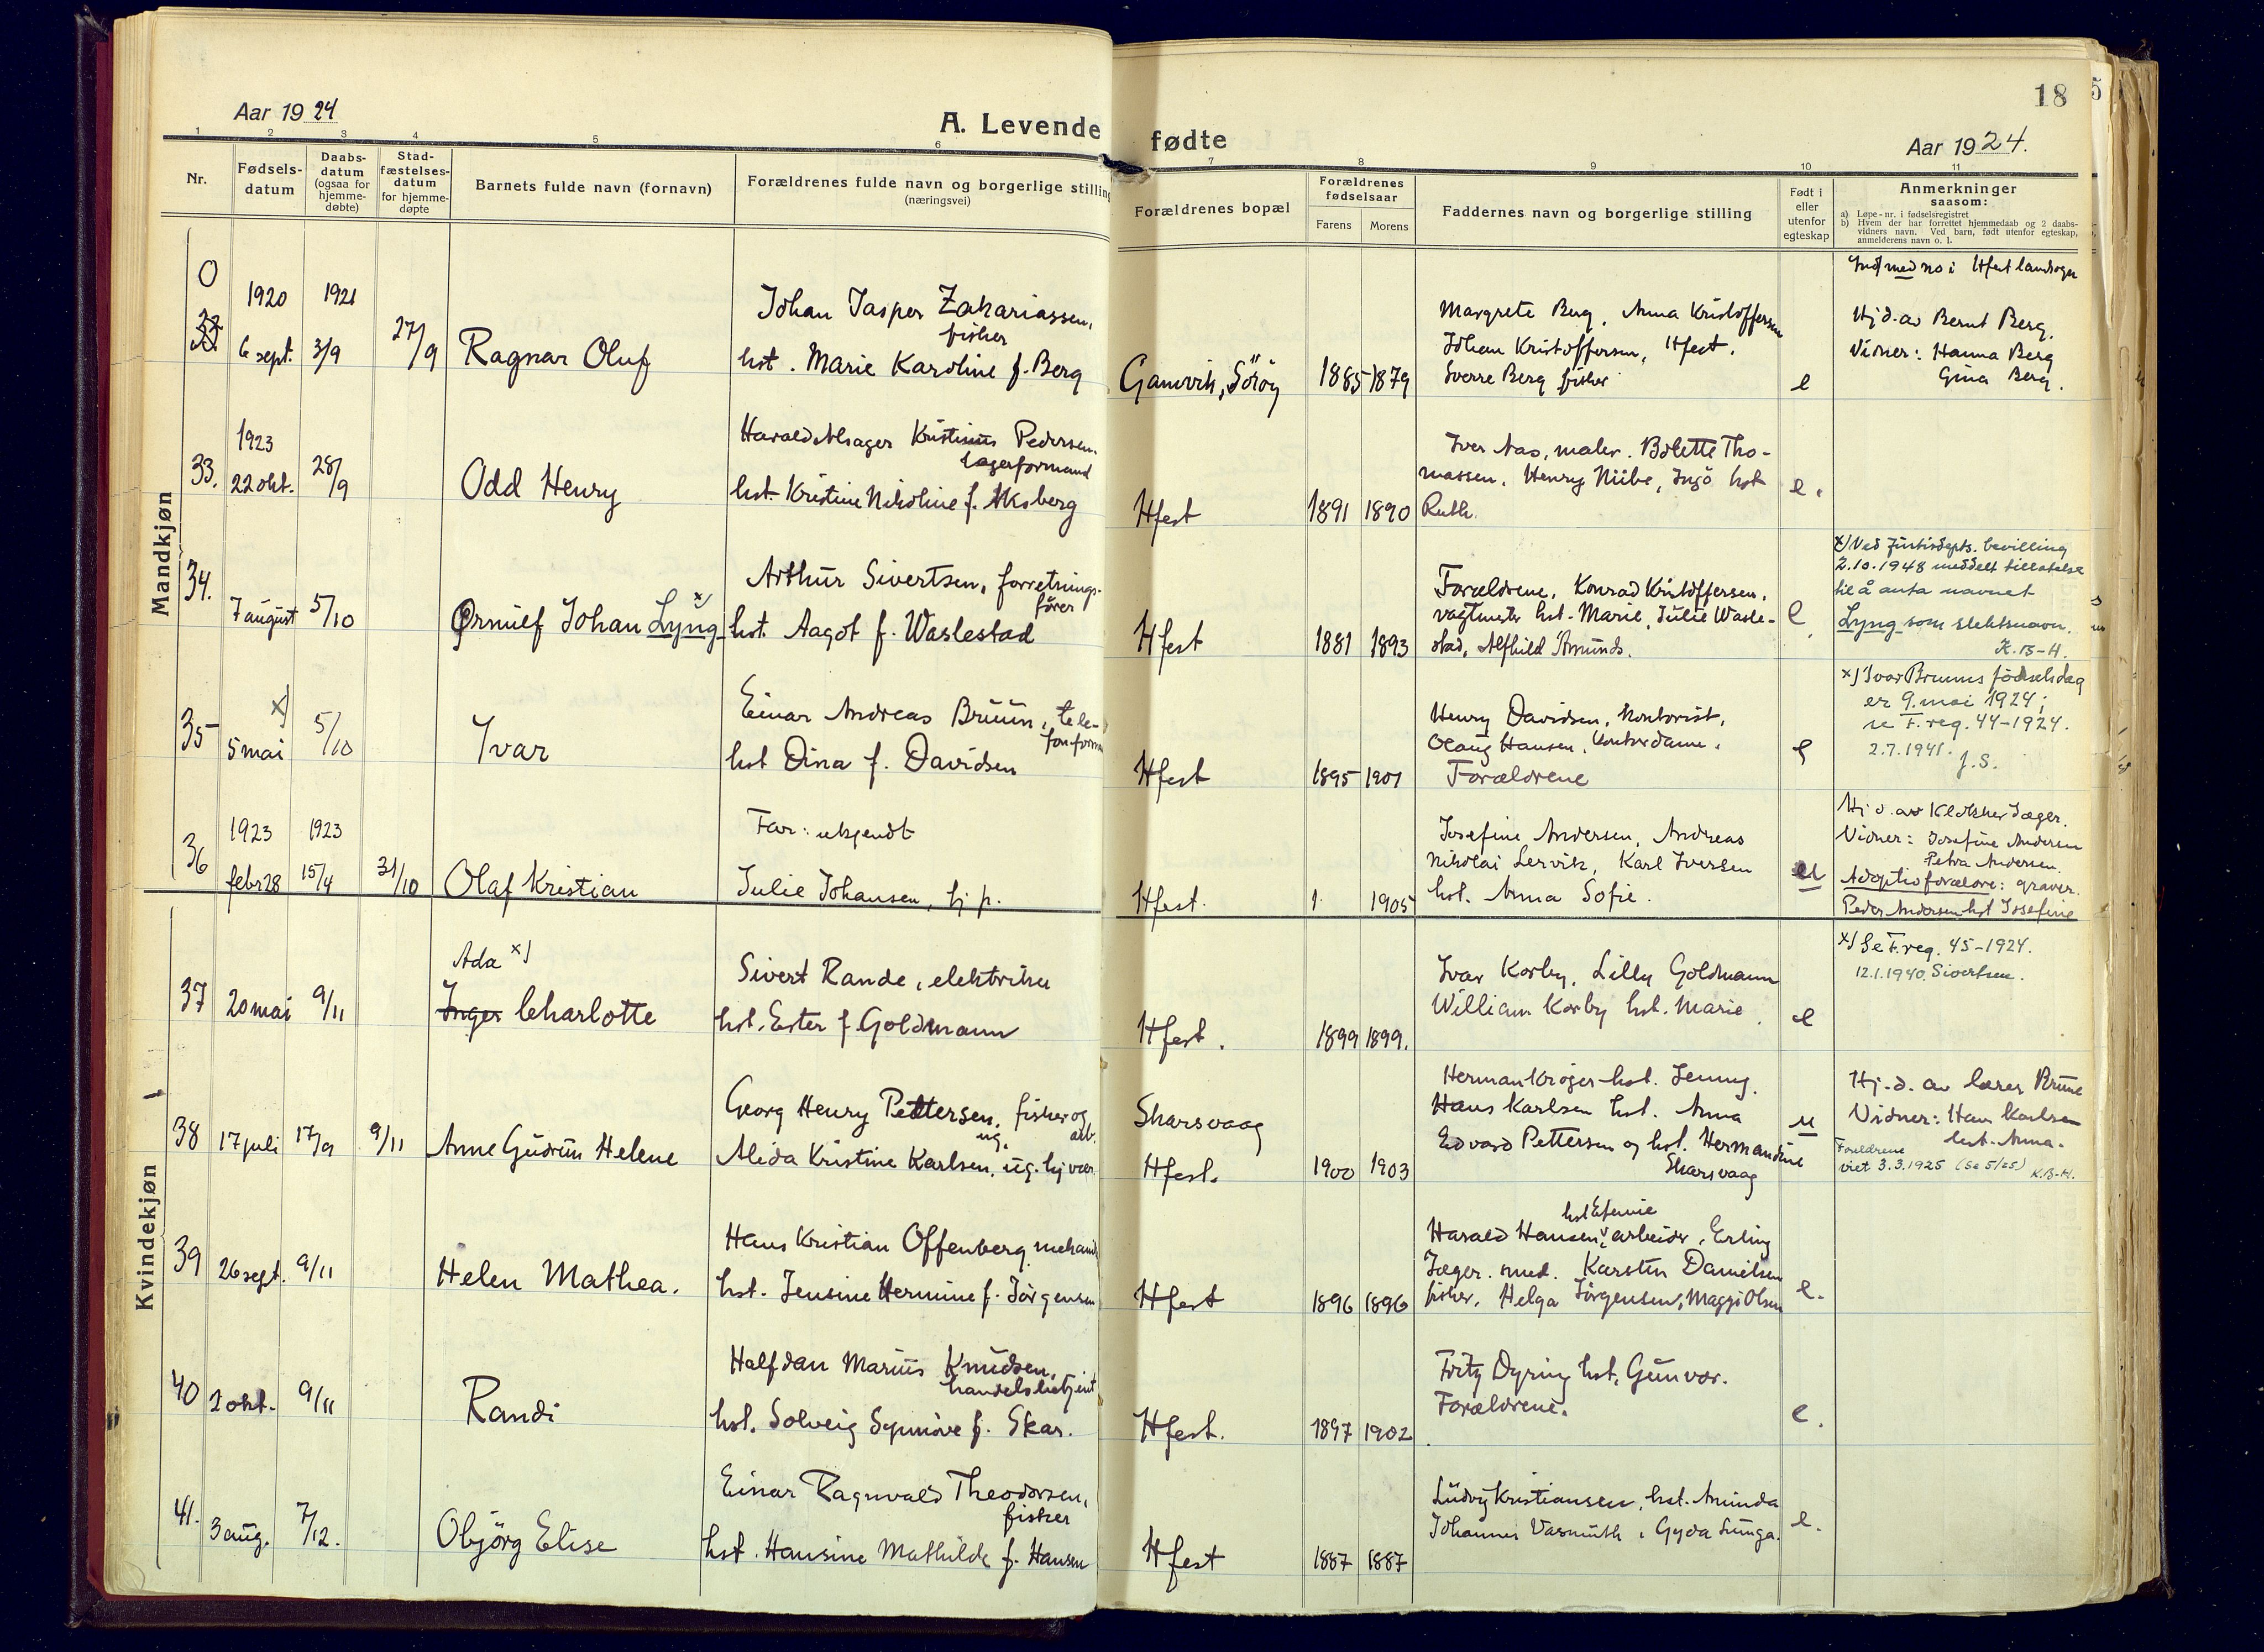 Aar 1924
A. Levende fødte
18
Aar 1924.
1 2 3 4 5 6 7 8 9 10 11
Nr.
Fødsels-
datum
Daabs-
datum
(ogsaa for
hjemme-
døbte)
Stad-
fæstelses-
datum
for hjemme-
døpte
Barnets fulde navn (fornavn)
Forældrenes fulde navn og borgerlige stilling
(næringsvei)
Forældrenes bopæl
Forældrenes
fødselsaar
Farens
Morens
Faddernes navn og borgerlige stilling
Født i
eller
utenfor
egteskap
Anmerkninger
saasom:
a) Løpe-nr. i fødselsregistret
b) Hvem der har forrettet hjemmedaab og 2 daabs-
vidners navn. Ved barn, født utenfor egteskap,
anmelderens navn o. l.
Mandkjøn
0
1920
6 sept.
1921
3/9
27/9
Ragnar Oluf
Johan Jasper Zakariassen,
fisker
hst. Marie Karoline f. Berg
Gamvik, Sörøy
1885 1879
Margrete Berg, Anna Kristoffersen
Johan Kristoffersen, Hfest.
Sverre Berg fisker
e
med no i Hfest landsogn
Hj d. av Bernt Berg.
Vidner: Hanna Berg
Gina Berg.
33.
1923
22 okt.
28/9
Odd Henry
Harald Alsager Kristinus Pedersen.
lagerformand
hst. Kristine Nikoline f. Aksberg
Hfest
1891 1890
Iver Aas, maler. Bolette Tho-
massen. Henry Niibe, Ingö hst
Ruth.
e.
34.
7 august
5/10
Ørnulf Johan Lyng x)
Arthur Sivertsen, forretnings-
fører
hst. Aagot f. Waslestad
Hfest
1881 1893
Forældrene, Konrad Kristoffersen,
vagtmester hst. Marie, Julie Wasle-
stad, Alfhild Amunds.
e
x) Ved Justisdepts. bevilling
2.10.1948 meddelt tillatelse
til å anta navnet
Lyng som slektsnavn.
K.B-H.
35
x)
5 mai
5/10
Ivar
Einar Andreas Bruun, tele-
fonform
hst Dina f. Davidsen
Hfest
1895 1901
Henry Davidsen, kontorist,
Olaug Hansen, kontordame.
Forældrene
e
x) Ivar Bruuns fødselsdag
er 9. mai 1924;
se F. reg. 44-1924.
2.7.1941. J.S.
36
1923
febr 28
1923
15/4
31/10
Olaf Kristian
Far: ukjendt
Julie Johansen, hj p.
Hfest.
1 1905
Josefine Andersen, Andreas
Nikolai Lervik, Karl Iversen
hst. Anna Sofie.
eu
Hj d. av Klokker Jæger.
Vidner: Josefine Andersen
Petra Andersen.
Adoptivforældre: graver
Peder Andersen hst Josefine
Kvindekjøn
37
20 mai
9/11
Ada x)
Inger Charlotte
Sivert Rande, elektriker
hst. Ester f. Goldmann
Hfest.
1899 1899.
Ivar Korby, Lilly Goldmann
William Korby hst. Marie
e
x) Se F. reg. 45-1924.
12.1.1940. Sivertsen.
38
17 juli
17/9
9/11
Anne Gudrun Helene
Georg Henry Pettersen, fisker og
ug. arb.
Alida Kristine Karlsen, ug. hj vær.
Skarsvaag
Hfest.
1900 1903
Herman Krøger hst. Jenny.
Hans Karlsen hst. Anna
Edvard Pettersen og hst. Hermandine
Skarsvaag
u
Hj. d. av lærer Brune
Vidner: Hans Karlsen
hst. Anna.
Foreldrene
viet 3.3.1925 (se 5/25) K.B-H.
39
26 sept.
9/11
Helen Mathea.
Hans Kristian Offenberg, mehanik
hst. Jensine Hermine f. Jörgensen
Hfest
1896 1896
hst Efenie
Harald Hansen, arbeider, Erling
Jæger. smed. Karsten Danielsen
fisker. Helga Jörgensen, Maggi Olsen
e.
40
2 okt.
9/11
Randi
Halfdan Marius Knudsen,
handelsbetjent
hst. Solveig Synnöve f. Skar.
Hfest.
1897 1902
Fritz Dyring hst. Gunvor.
Forældrene.
e.
41.
3 aug.
7/12.
Objörg Elise
Einar Ragnvald Theodorsen,
fisker
hst. Hansine Mathilde f. Hansen
Hfest
1887 1887
Ludvig Kristiansen, hst. Aminda
Johannes Vasmuth, Gyda Sunga.
e.